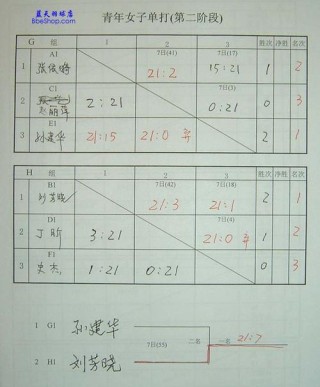 蓝天羽球店
88eShop.com
青年女子单打(第二阶段)
G 组 1 2 3 胜次 净胜 名次
A1 7日(41) 7日(17)
1 张俊 21:2 15:21 1 2
C1 7日(3)
2 2:21 0:21 0 3
E1
3 孙建华 21:15 21:0 弃 2 1
H 组 1 2 3 胜次 净胜 名次
B1 7日(42) 7日(18)
1 刘芳晓 21:3 21:1 2 1
D1 7日(4)
2 丁昕 3:21 21:0 弃 1 2
F1
3 史杰 1:21 0:21 0 3
1 G1 孙建华
7日(53) 二名 一名 21:7
2 H1 刘芳晓